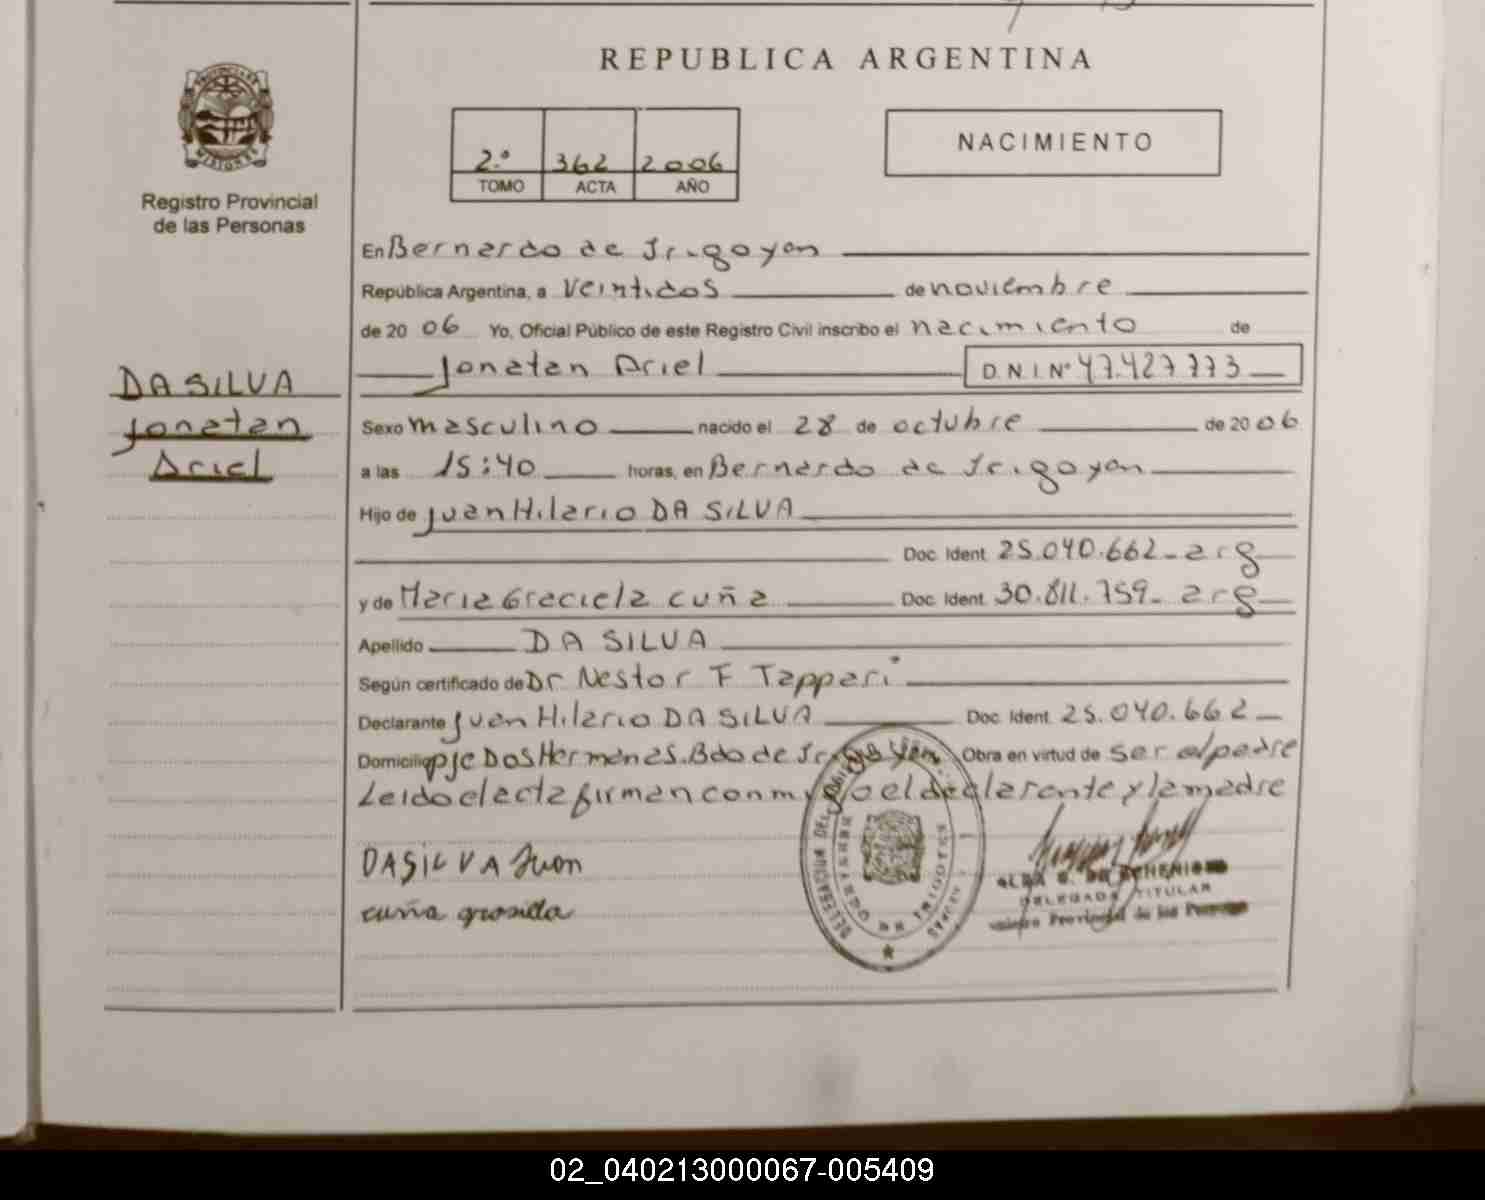 REPUBLICA ARGENTINA
PROVINCIA DE
MISIONES
Registro Provincial
de las Personas
2.º 362 2006
TOMO ACTA AÑO
NACIMIENTO
En Bernardo de Irigoyen
República Argentina, a Veintidos de noviembre
de 2006 Yo, Oficial Público de este Registro Civil inscribo el nacimiento de
Jonatan Ariel D.N.I. Nº 47.427.773
DA SILVA
Jonatan
Ariel
Sexo masculino nacido el 28 de octubre de 2006
a las 15:40 horas, en Bernardo de Irigoyen
Hijo de Juan Hilario DA SILVA
Doc. Ident. 25.040.662_ arg
y de Maria Graciela cuña Doc. Ident. 30.811.759_ arg
Apellido DA SILVA
Según certificado de Dr Nestor F Tappari
Declarante Juan Hilario DA SILVA Doc. Ident. 25.040.662
Domicilio pje Dos Hermanas. Bdo de Irigoyen Obra en virtud de ser el padre
Leido el acta firman conmigo el declarante y la madre
DASILVA Juan
cuña
DELEGADA TITULAR
Provincial de las
02_040213000067-005409